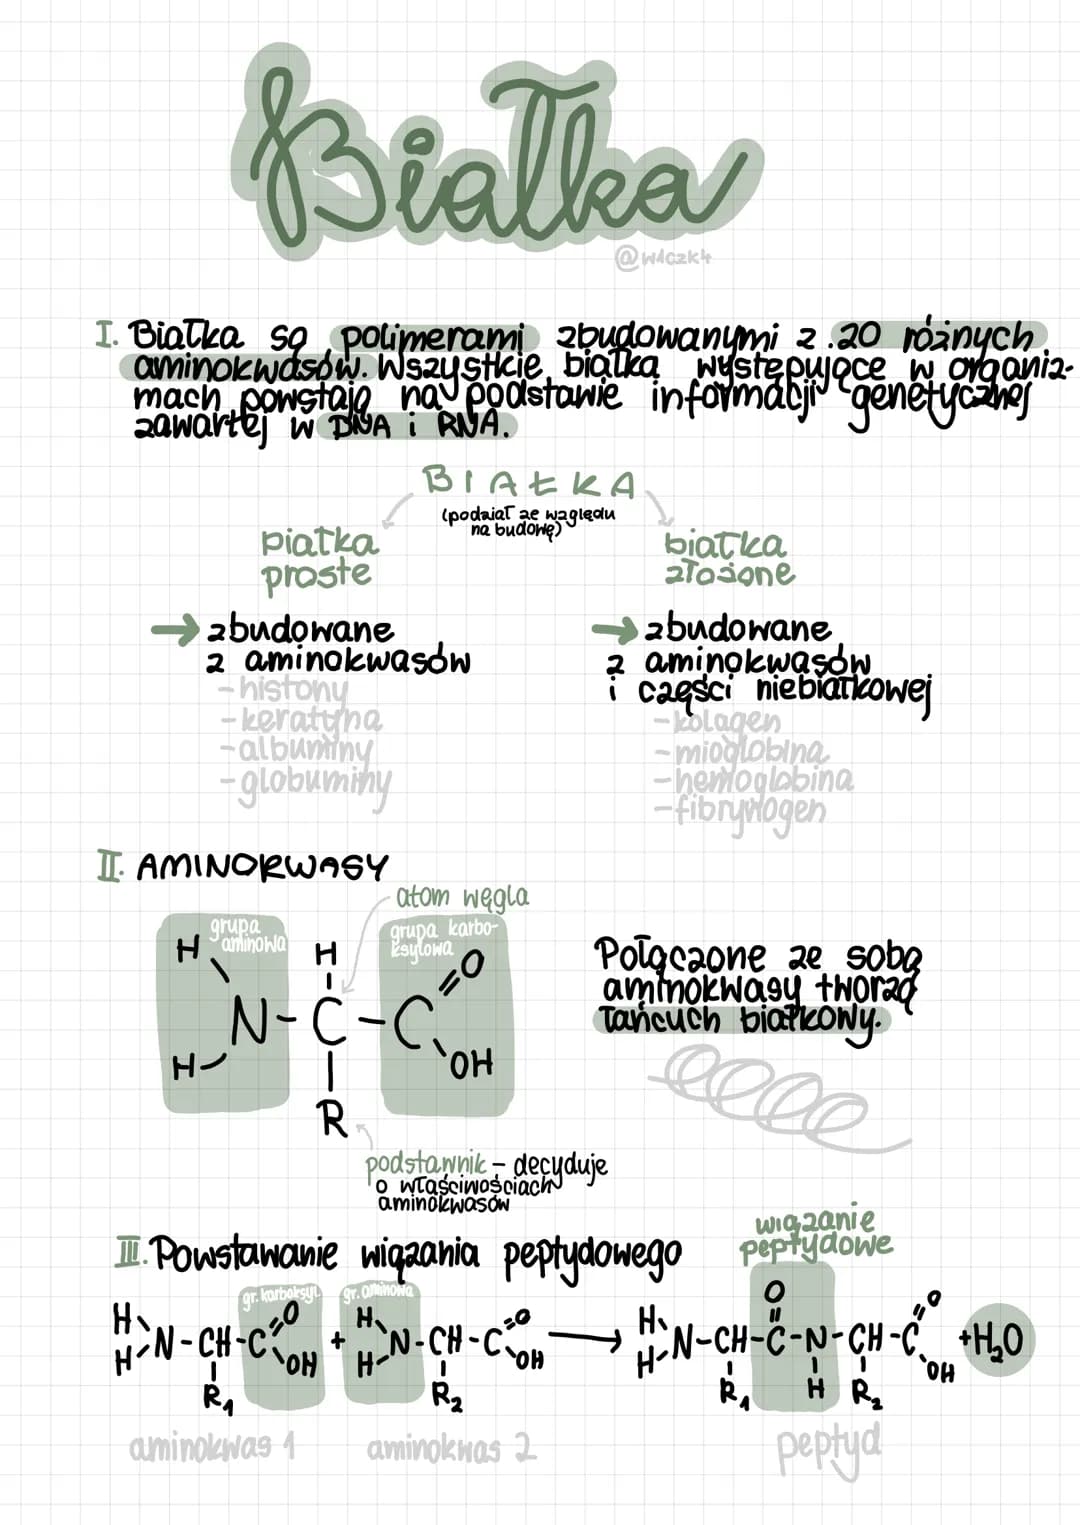 Białka
@w1czk4
I. Białka są polimerami zbudowanymi z 20 różnych
aminokwasów. Wszystkie białka występujące w organiz-
mach powstają na podstawie informacji genetycznej
zawartej w DNA i RNA.
BIAŁKA
(podział ze względu
na budowę)
białka
proste
białka
złożone
→ zbudowane
z aminokwasów
- histony
- keratyna
- albuminy
- globuminy
→ zbudowane
z aminokwasów
i części niebiałkowej
- kolagen
- mioglobina
- hemoglobina
- fibrynogen
II. AMINOKWASY
atom węgla
grupa
aminowa
grupa karbo-
ksylowa
H H O
N-C-C
H OH
R
podstawnik - decyduje
o właściwościach
aminokwasów
Połączone ze sobą
aminokwasy tworzą
łańcuch białkowy.
III. Powstawanie wiązania peptydowego
wiązanie
peptydowe
gr. karboksyl. gr. aminowa
H O H O H O O
N-CH-C + N-CH-C → N-CH-C-N-CH-C +H₂O
H OH H OH H H OH
R₁ R₂ R₁ R₂
aminokwas 1 aminokwas 2 peptyd